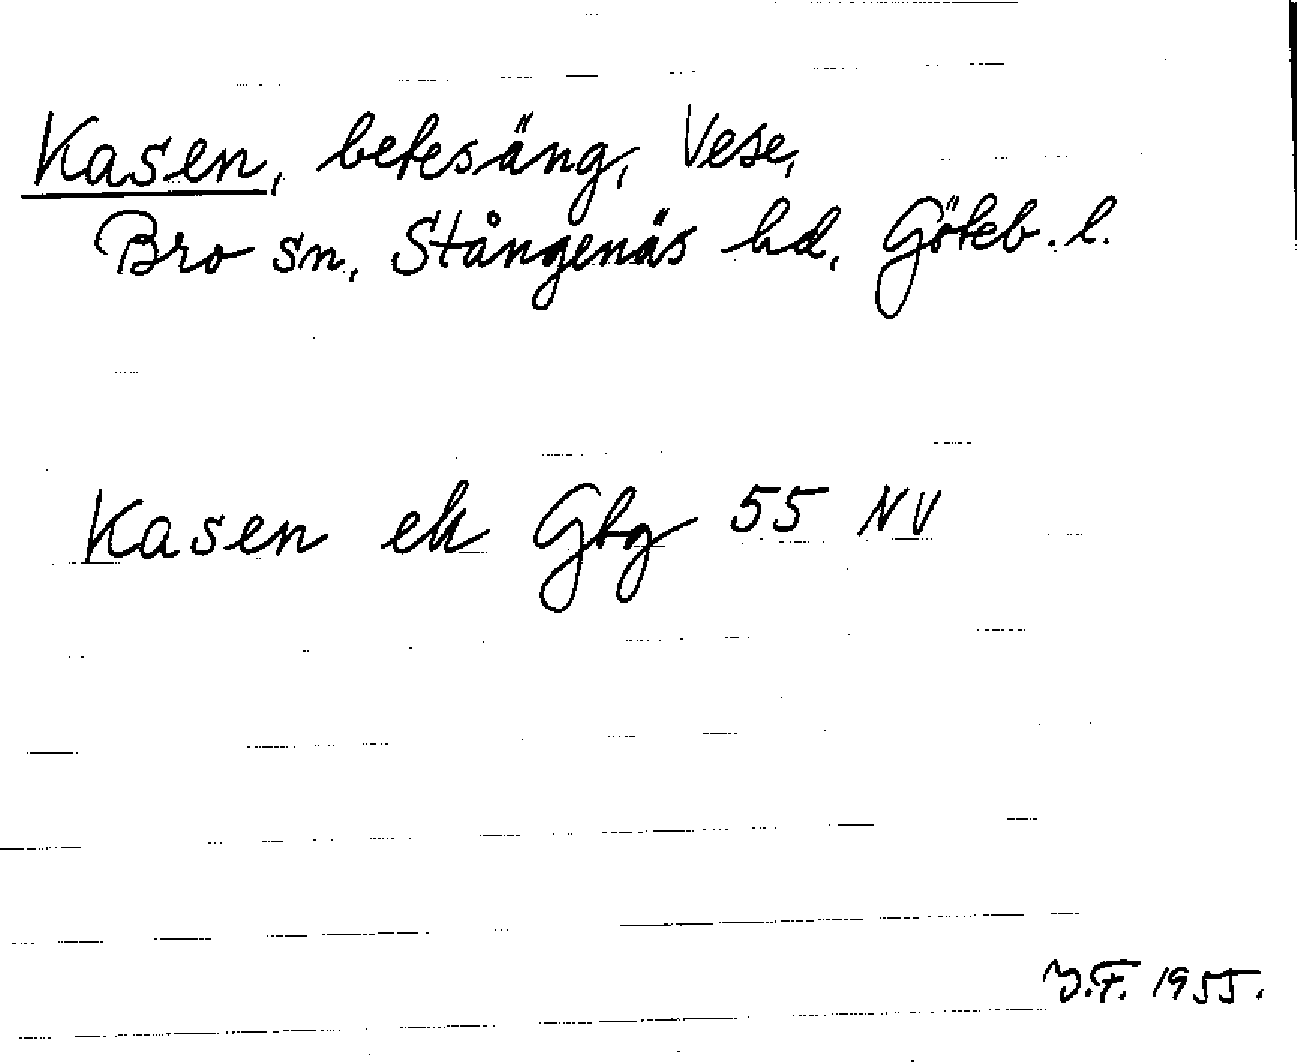 Kasen, betesäng, Vese,
Bro sn, Stångenäs hd, Göteb. l.
Kasen ek Gbg 55 NV
J.F. 1955.